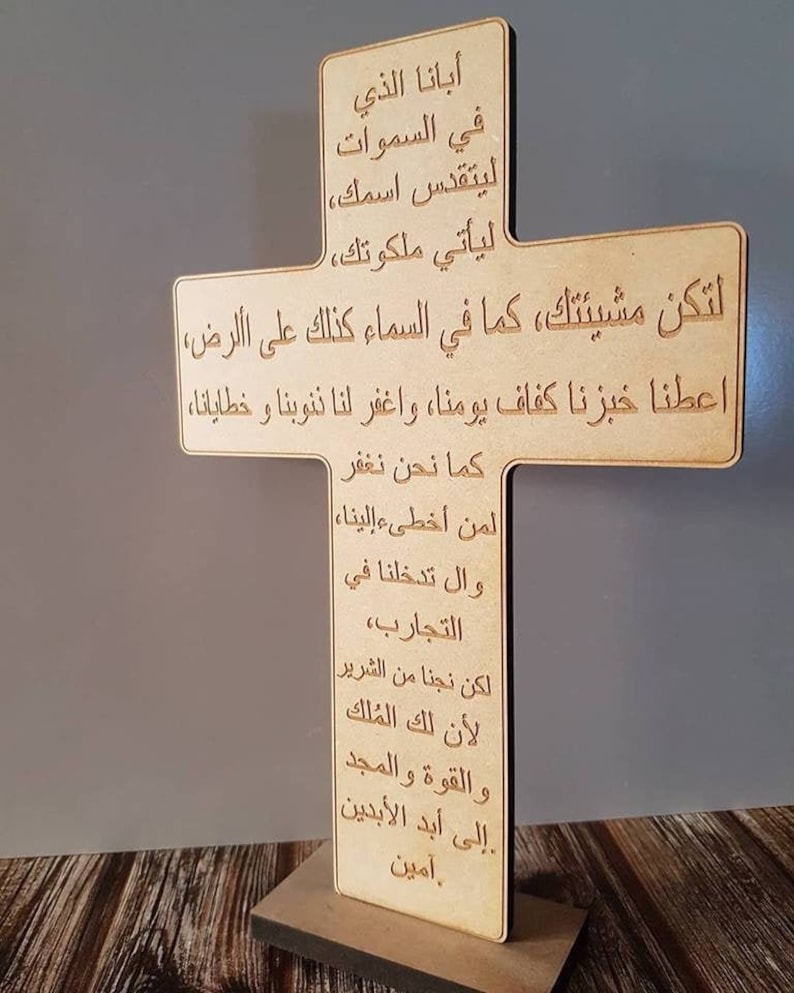 أبانا الذي
في السموات
ليتقدس اسمك،
ليأتي ملكوتك،
لتكن مشيئتك، كما في السماء كذلك على األرض،
اعطنا خبزنا كفاف يومنا، واغفر لنا ننوبنا و خطايانا،
كما نحن نغفر
لمن أخطىءإلينا،
وال تدخلنا في
التجارب،
لكن نجنا من الشرير
لأن لك المُلك
والقوة والمجد
.إلى أبد الأبدين
.آمين